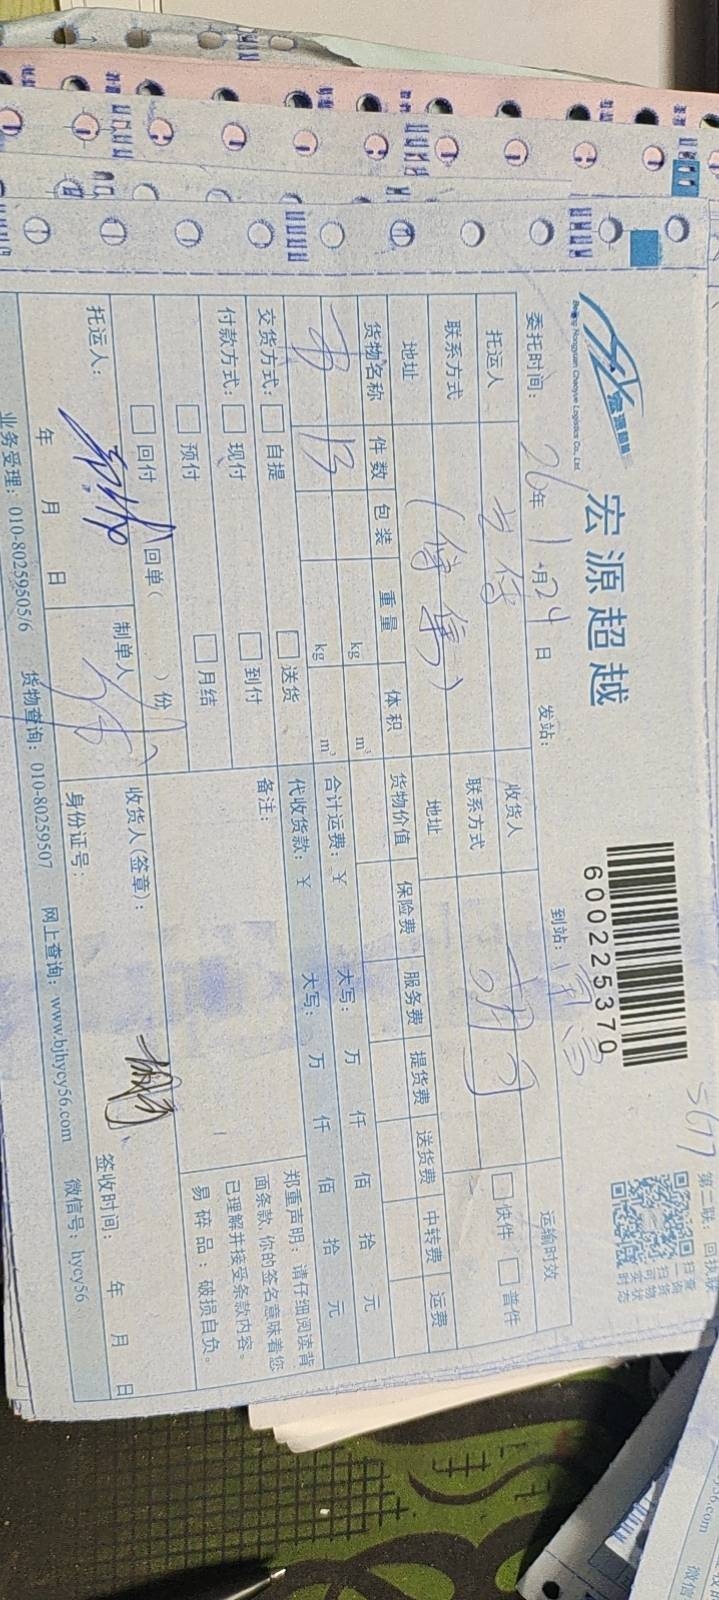 宏源超越
宏源超越
Beijing Hongyuan Chaoyue Logistics Co., Ltd
6002225370
5677
第二联：回执联
扫码查询
可货物
实时状态
委托时间：26年1月24日 发站： 到站：
运输时效
托运人 收货人
快件 普件
联系方式 联系方式
地址 地址
货物名称 件数 包装 重量 体积 货物价值 保险费 服务费 提货费 送货费 中转费 运费
13 kg m³
kg m³
合计运费：￥ 大写： 万 仟 佰 拾 元
代收货款：￥ 大写： 万 仟 佰 拾 元
交货方式： 自提 送货
备注：
付款方式： 现付 到付
预付 月结
回付 回单（ ）份
郑重声明：请仔细阅读背
面条款，你的签名意味着您
已理解并接受条款内容。
易碎品：破损自负。
托运人： 制单人 收货人（签章）：
年 月 日 身份证号： 签收时间： 年 月 日
业务受理：010-80259505/6 货物查询：010-80259507 网上查询：www.bjhycy56.com 微信号：hycy56